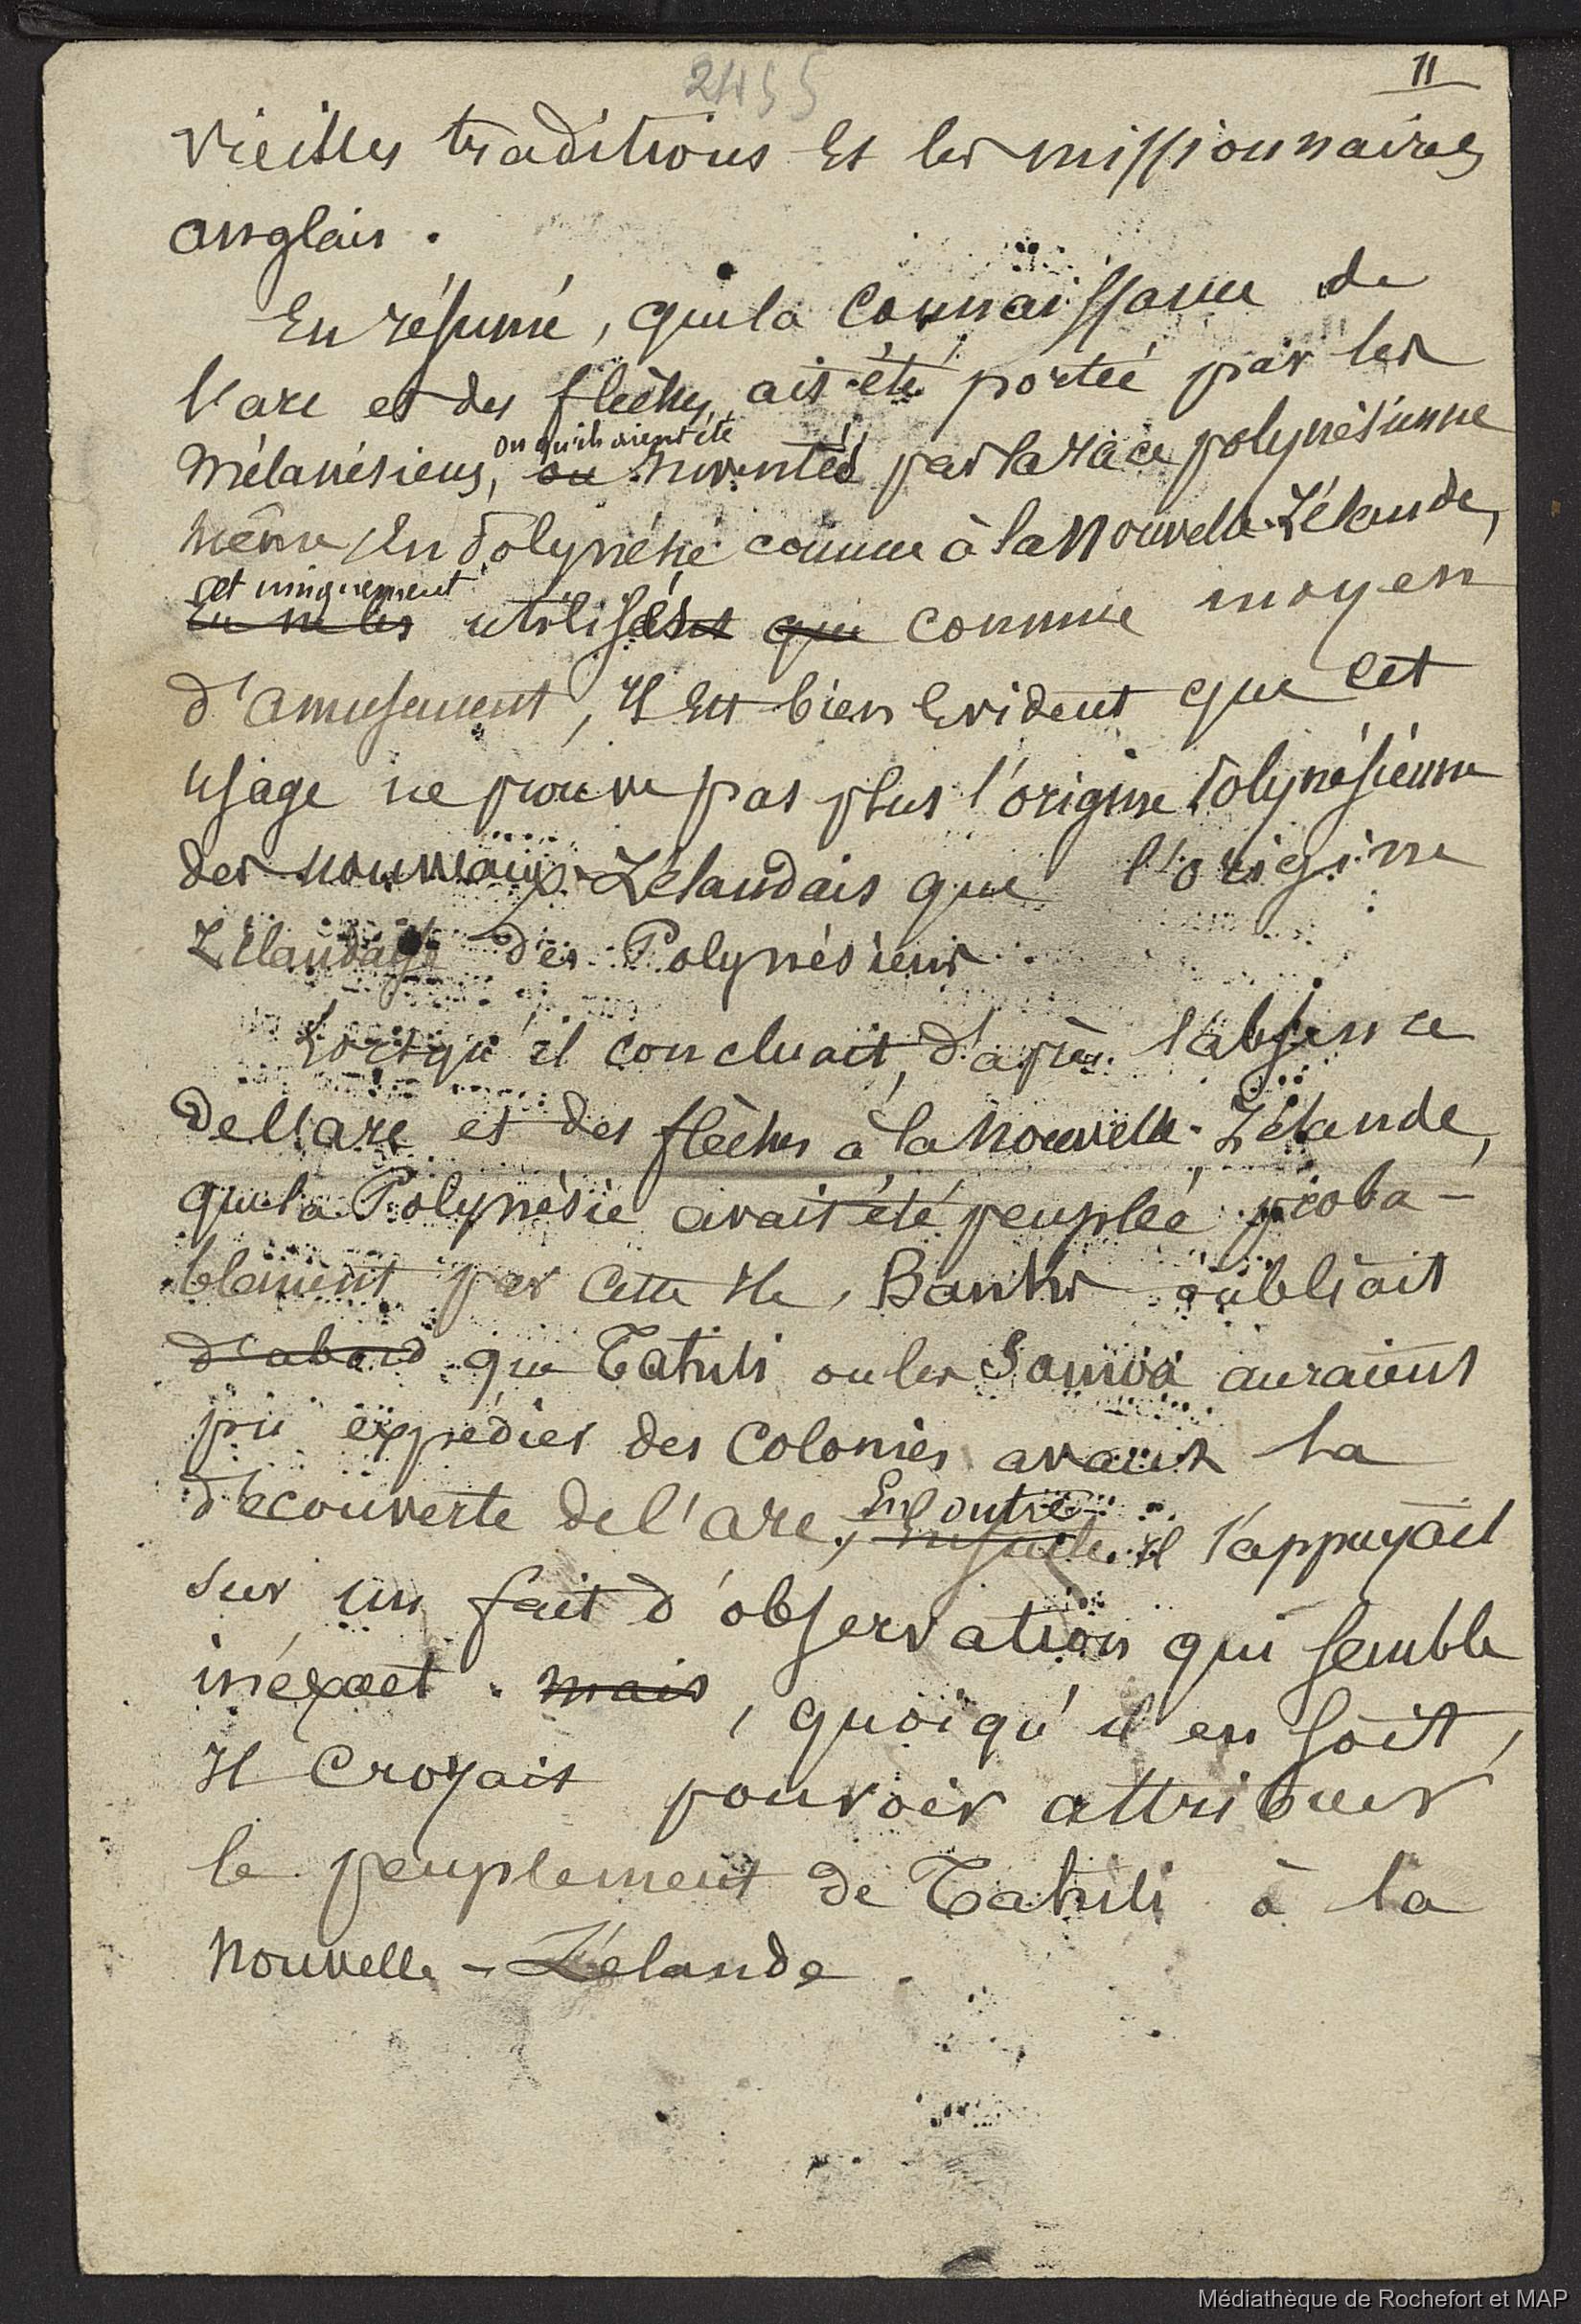 2455
11
vieilles traditions et les missionnaires
anglais.
En résumé, que la connaissance de
l'arc et des flèches ait été portée par les
ou qu'ils aient été
Mélanésiens, ou inventés par la race polynésienne
même en Polynésie comme à la Nouvelle-Zélande,
et uniquement
utilisés que comme moyen
d'amusement, il est bien évident que cet
usage ne prouve pas plus l'origine Polynésienne
des nouveaux-Zélandais que l'origine
Zélandaise des Polynésiens.
Lorsqu'il concluait, d'après l'absence
de l'arc et des flèches à la Nouvelle-Zélande,
que la Polynésie avait été peuplée proba-
blement par cette île, Banks oubliait
d'abord que Tahiti ou les Samoa auraient
pu expédier des colonies avant la
En outre
découverte de l'arc; Ensuite il s'appuyait
sur un fait d'observation qui semble
inéxact. mais, quoiqu'il en soit,
il croyait pouvoir attribuer
le peuplement de Tahiti à la
Nouvelle-Zélande.
Médiathèque de Rochefort et MAP